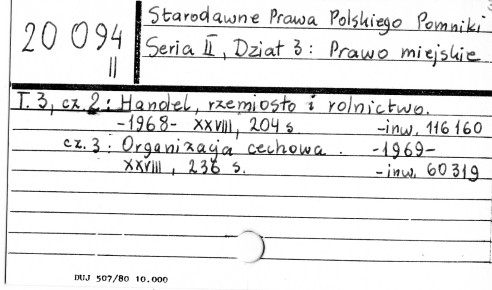 20 094
II
Starodawne Prawa Polskiego Pomniki
Seria II, Dział 3: Prawo miejskie
T. 3, cz. 2: Handel, rzemiosło i rolnictwo.
-1968- XXVIII, 204 s. -inw. 116160
cz. 3: Organizacja cechowa. -1969-
XXVIII, 236 s. -inw. 60319
DUJ 507/80 10.000